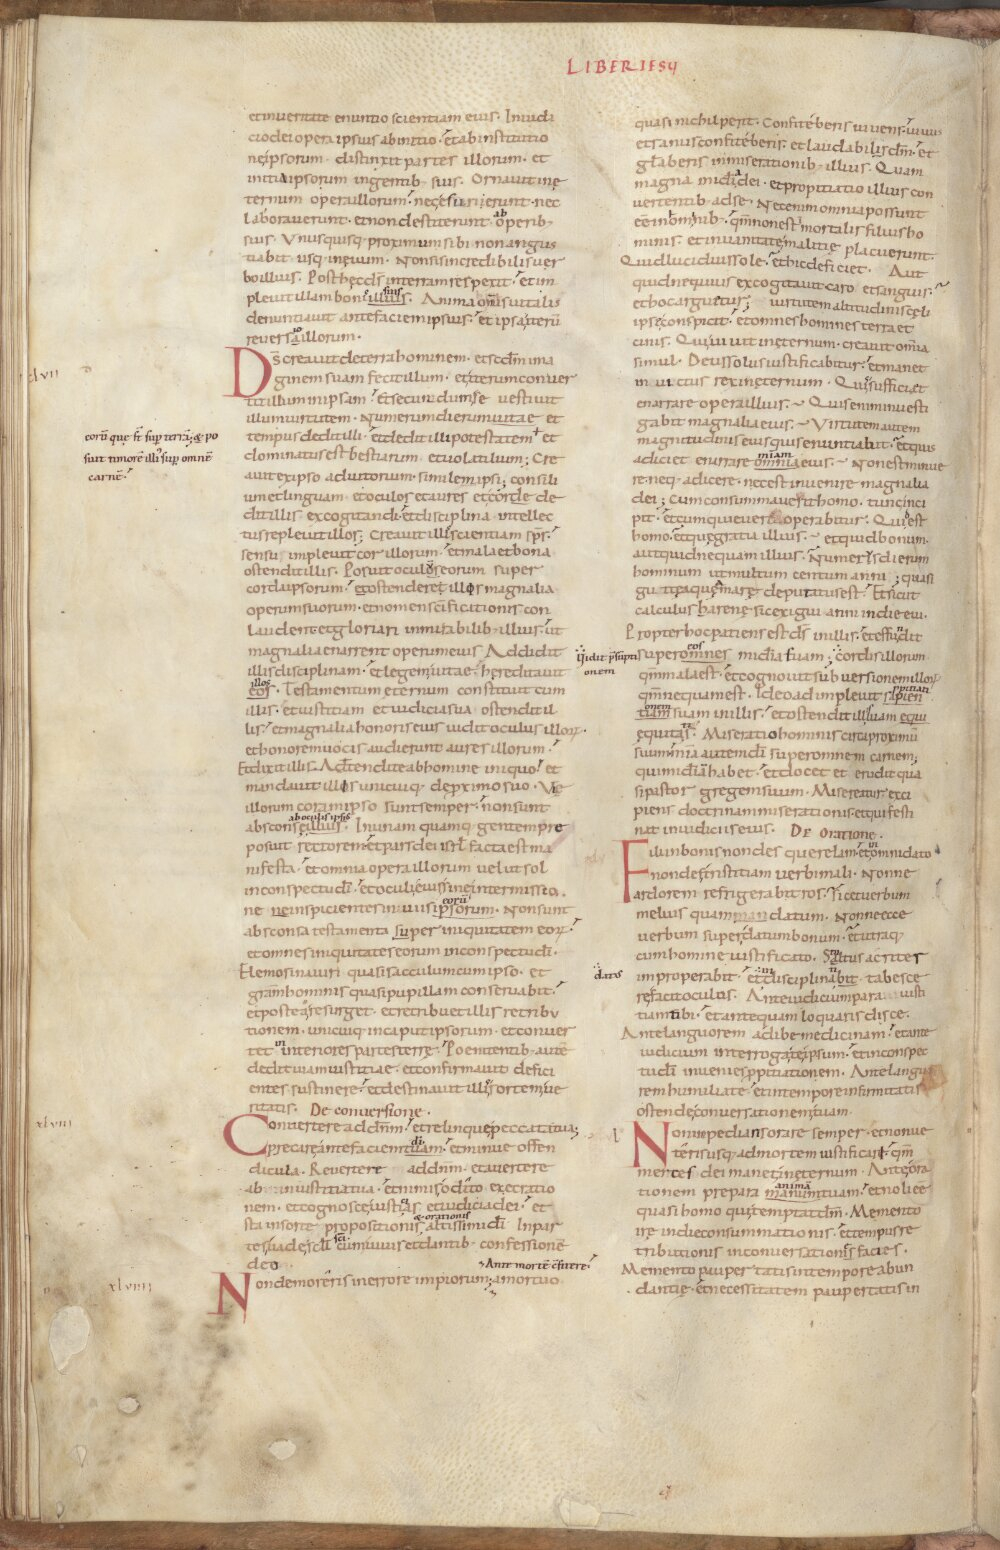 LIBER IESU
et inveritate enuntio scientiam eius. In iudi
cio dei opera ipsius ab initio. et ab institutio
ne ipsorum distinxit partes illorum. et
initia ipsorum in gentib. suis. Ornavit in ę
ternum opera illorum. nec esurierunt nec
laboraverunt. et non destiterunt ab operib.
suis. Unusquisq. proximum sibi non angus
tiabit usq. in ęvum. Non sis incredibilis ver
bo illius. Post hęc ds in terram respexit. et im
plevit illam bonis illius. suis Anima omis vitalis
denuntiavit ante faciem ipsius. et ipsa iterū
reversio illorum.
Ds creavit de terra hominem. et scdm ima
xlvii
ginem suam fecit illum. et iterum conver
tit illum in ipsam. Et secundum se vestivit
illum virtutem. Numerum dierum vitae et
tempus dedit illi. et dedit illi potestatem et
eorū que st sup terrā; & po
suit timorē illi sup omnē
carnē.
dominatus est bestiarum. et volatilium; Cre
avit ex ipso adiutorium. simile ipsi; consili
um et linguam. et oculos et aures et cor de
dit illis excogitandi. et disciplina intellec
tus replevit illos; Creavit illis scientiam sps.
sensu implevit cor illorum. et mala et bona
ostendit illis. Posuit oculos eorum super
corda ipsorum. et ostenderet illos magnalia
operum suorum. et nomen scificationis con
laudent et gloriari in mirabilib. illius. ut
magnalia enarrent operum eius. Addidit
illis disciplinam. et legem vitae. hereditavit
illos eos. Testamentum eternum constituit cum
illis. et iustitiam et iudicia sua ostendit il
lis. et magnalia honoris eius vidit oculus illorum.
et honorem vocis audierunt aures illorum.
Et dixit illis. Adtendite ab homine iniquo. et
mandavit illis unicuiq. de proximo suo. Vię
illorum coram ipso sunt semper. non sunt
absconse ab oculis ipsius illius. In unam quamq. gentem pre
posuit rectorem. et pars dei isrl facta est ma
nifesta. et omnia opera illorum velut sol
in conspectu di. et oculi eius sine intermissio
ne inspicientes in viis eorū ipsorum. Non sunt
absconsa testamenta super iniquitatem eorum.
et omnes iniquitates eorum in conspectu di.
Elemosina viri quasi sacculum cum ipso. et
gram hominis quasi pupillam conservabit.
et postea resurget. et retribuet illis retribu
tionem. unicuiq. in caput ipsorum. et conver
tet in interiores partes terrę. Poenitentib. autē
dedit viam iustitiae. et confirmavit defici
entes sustinere. et destinavit illis sortem ve
ritatis. De conversione.
xlviii
Convertere ad dnm. et relinque peccata tua;
precare ante faciem di tuam. et minue offen
dicula. Revertere ad dnm. et avertere
ab iniustitia tua. et nimis odito execratio
nem. et cognosce iustitias et iudicia dei. et
sta in sorte propositionis & orationis altissimi di. In par
tes vade scli sci cum vivis et dantib. confessionē
deo.
Ante mortē cfitere.
xlviiii
Non demoreris in errore impiorum; a mortuo
quasi nichil perit. Confiteberis vivens. vivus
et sanus confiteberis. et laudabilis dm. et
glaberis in miserationib. illius. Quam
magna midia dei. et propitiatio illius con
vertentib. ad se. Nec enim omnia possunt
ee in hominib. qm non est inmortalis filius ho
minis. et in vanitate malitię placuerunt.
Quid lucidius sole. et hic deficiet. Aut
quid nequius excogitavit caro et sanguis.
et hoc arguetur; virtutem altitudinis cęli
ipse conspicit. et omnes homines terra et
cinis. Qui vivit in eternum. creavit omnia
simul. Deus solus iustificabitur. et manet
invictus rex in eternum. Quis sufficiet
enarrare opera illius. Quis enim investi
gabit magnalia eius. Virtutem autem
magnitudinis eius quis enuntiabit. et quis
adiciet enarrare miam omnia eius. Non est minue
re. neq. adicere. nec est invenire magnalia
dei; Cum consummaverit homo. tunc inci
pit. et cum quieverit operabitur. Quid est
homo. et quę gratia illius. et quid bonum.
aut quid nequam illius. Numerus dierum
hominum ut multum centum anni; quasi
gutta aquę maris deputatus est. Et sicut
calculus harenę sic exigui anni in die evi.
Propter hoc patiens est ds in illis. et effundit
super eos omnes midia suam; cordis illorum
Vidit psupti
onem
qm mala est. et cognovit subversionem illorum
qm nequam est. Ideo adimplevit ppitiati
onem sapien
tiam suam in illis. et ostendit illis suam equi
equitatis. Miseratio hominis circa proximū
suum. mia autem di super omnem carnem;
qui midia habet. et docet et erudit qua
si pastor gregem suum. Misereatur exci
piens doctrinam miserationis. et qui festi
nat in iudiciis eius. De oratione.
Fili in bonis non des querelam. et in omni dato
non des tristitiam verbi mali. Nonne
ardorem refrigerabit ros. sic et verbum
melius quam datum. Nonne ecce
verbum super datum bonum. et utraq.
cum homine iustificato. Stultus acriter
improperabit. et datus indisciplinati tabescere
facit oculos. Ante iudicium para iusti
tiam tibi. et antequam loquaris disce.
Ante languorem adibe medicinam. et ante
iudicium interroga te ipsum. et in conspec
tu di invenies ppitiationem. Ante languo
rem humilia te. et in tempore infirmitatis
ostende conversationem tuam.
Non impediaris orare semper. et non ve
teris usq. ad mortem iustificari. qm
merces dei manet in eternum. Ante ora
tionem prepara animā tuam. et noli eē
quasi homo qui temptat dm. Memento
irę in die consummationis. et tempus re
tributionis in conversatione faciei.
Memento paupertatis in tempore abun
dantię. et necessitatem paupertatis in